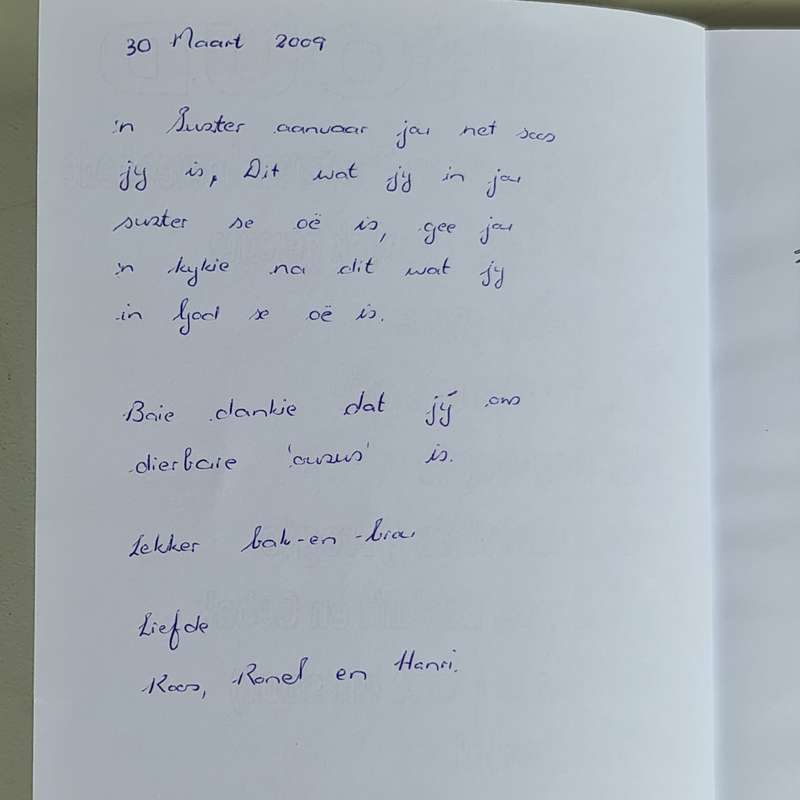 30 Maart 2009
'n Suster aanvaar jou net soos
jy is, Dit wat jy in jou
suster se oë is, gee jou
'n kykie na dit wat jy
in God se oë is.
Baie dankie dat jý ons
dierbare 'ousus' is.
Lekker bak-en-brou
Liefde
Roos, Ronel en Hanri.